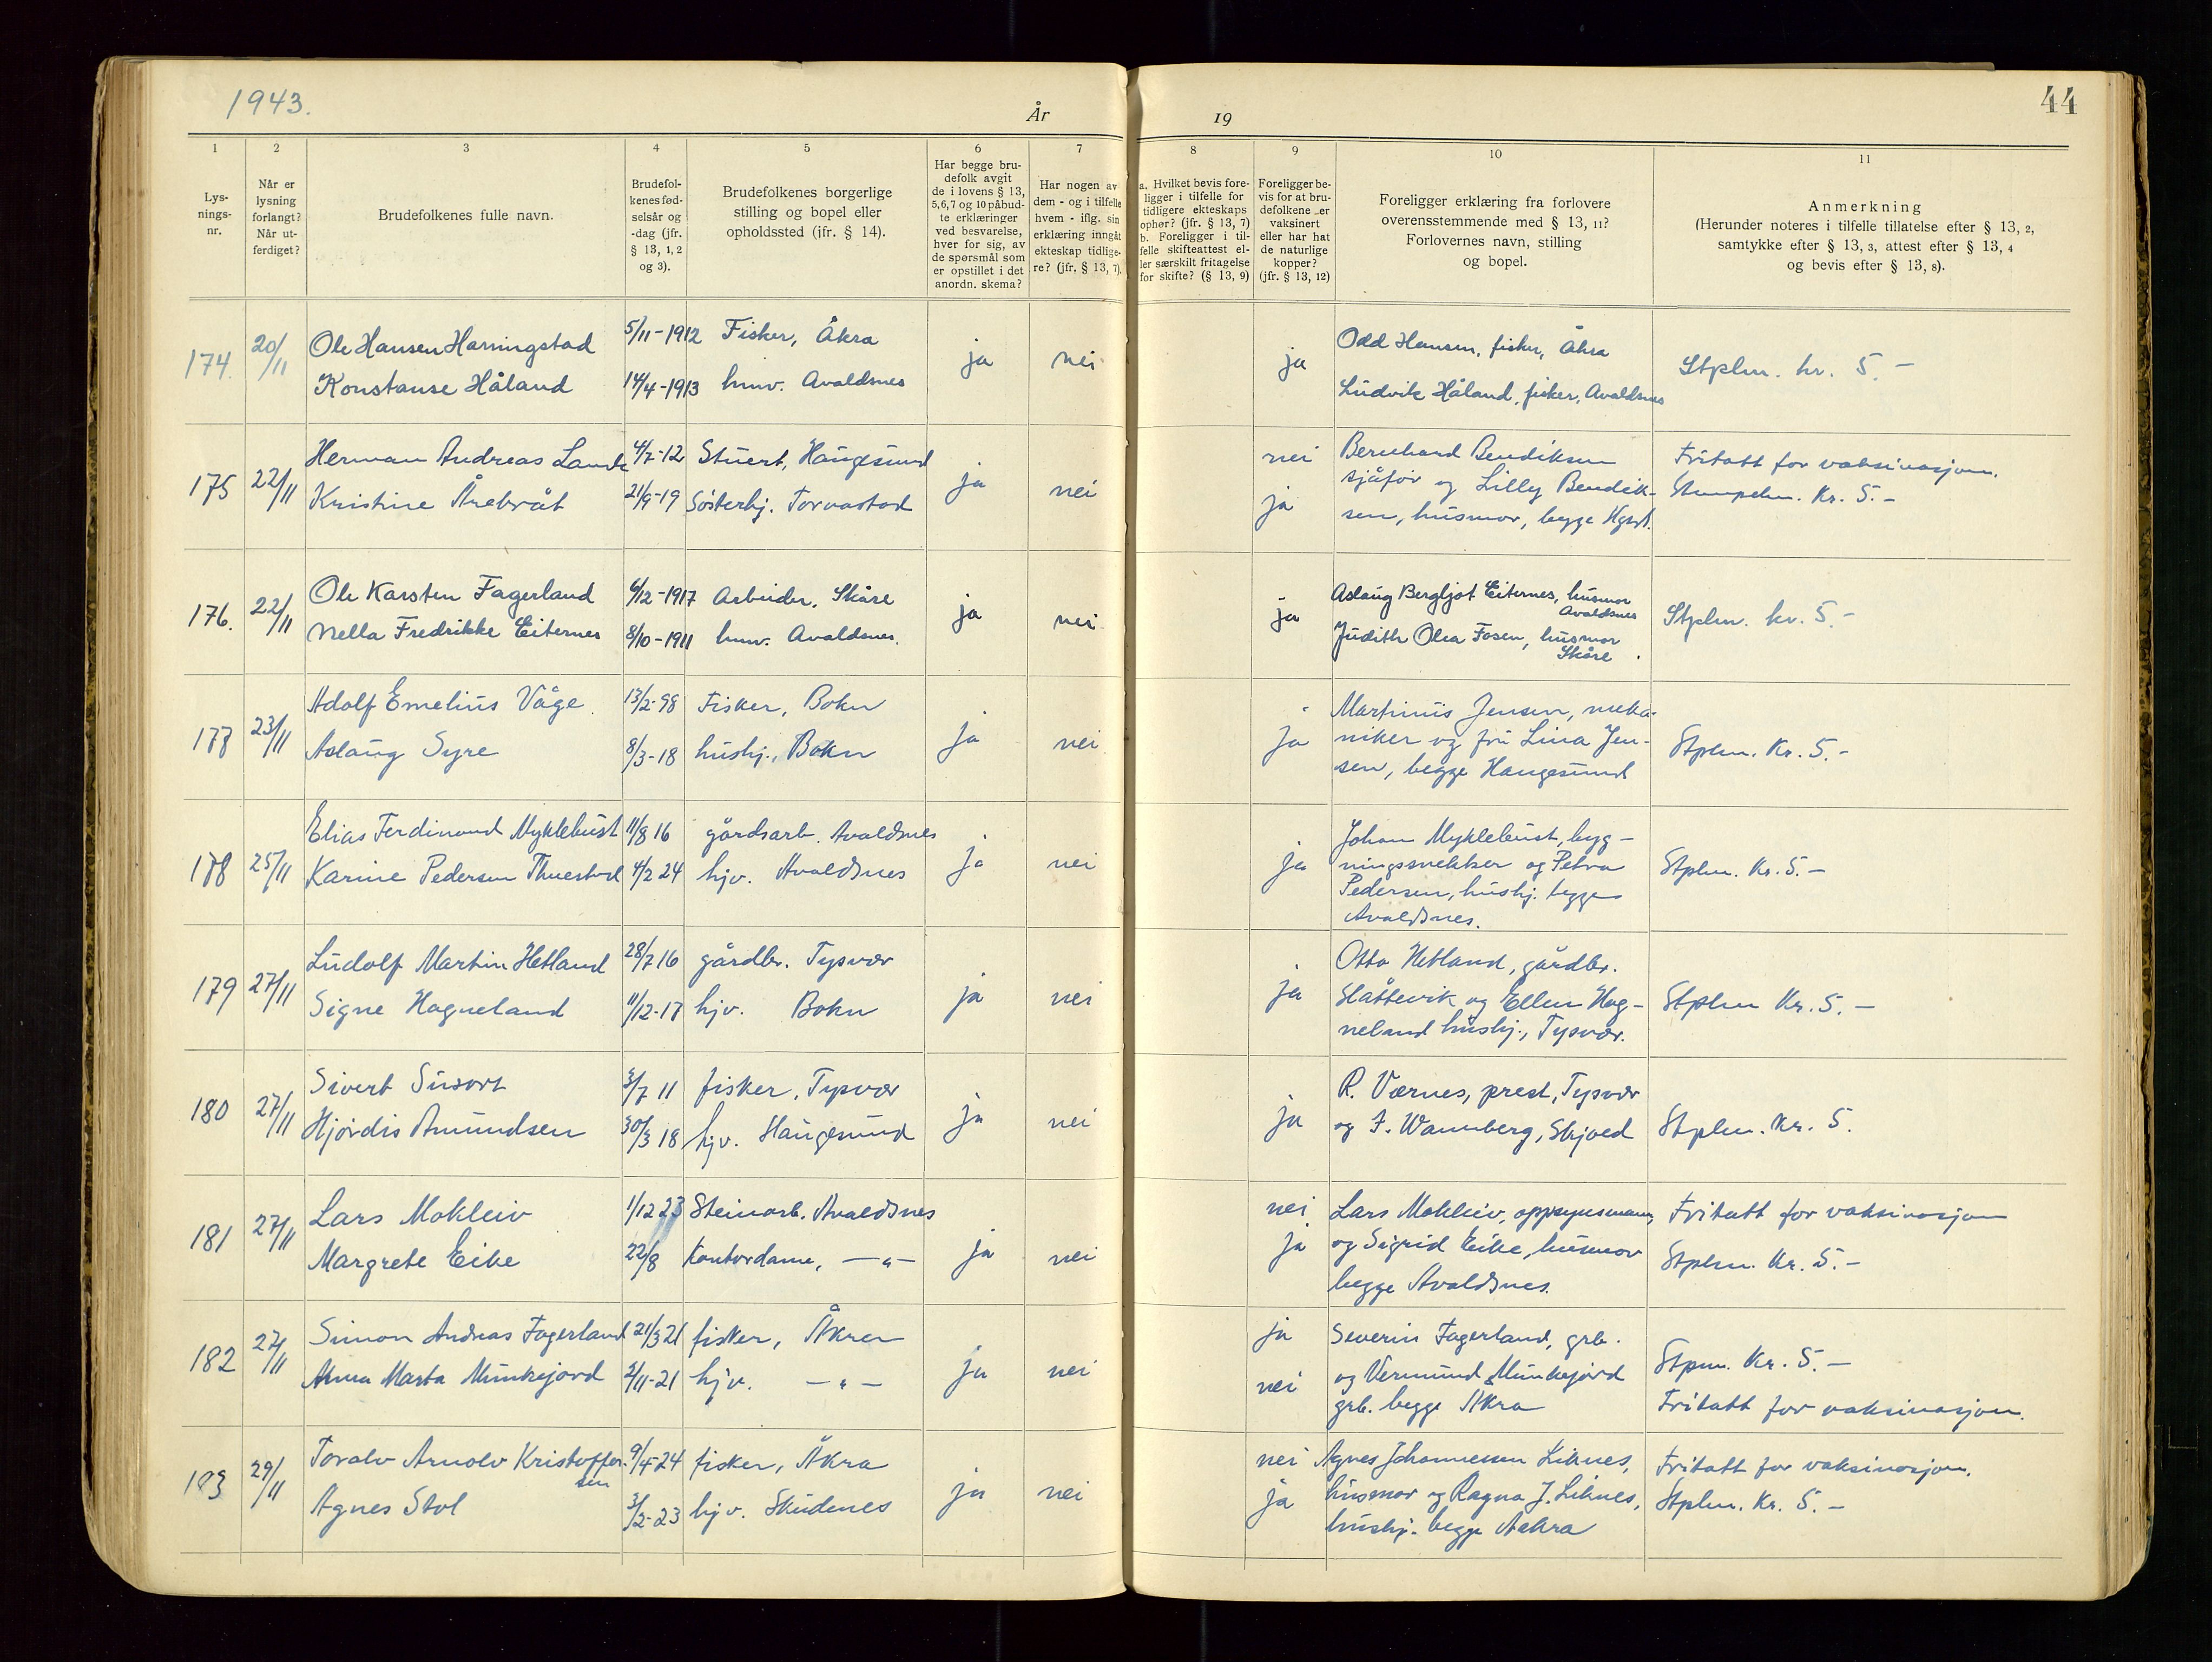 1943.
År
19
44
1
2
3
4
5
6
7
8
9
10
11
Lys-
nings-
nr.
Når er
lysning
forlangt?
Når ut-
ferdiget?
Brudefolkenes fulle navn.
Brudefol-
kenes fød-
selsår og
-dag (jfr.
§ 13, 1, 2
og 3).
Brudefolkenes borgerlige
stilling og bopel eller
opholdssted (jfr. § 14).
Har begge bru-
defolk avgit
de i lovens § 13,
5, 6, 7 og 10 påbud-
te erklæringer
ved besvarelse,
hver for sig, av
de spørsmål som
er opstillet i det
anordn. skema?
Har nogen av
dem - og i tilfelle
hvem - iflg. sin
erklæring inngåt
ekteskap tidlige-
re? (jfr. § 13, 7).
a. Hvilket bevis fore-
ligger i tilfelle for
tidligere ekteskaps
ophør? (jfr. § 13, 7)
b. Foreligger i til-
felle skifteattest el-
ler særskilt fritagelse
for skifte? (§ 13, 9)
Foreligger be-
vis for at bru-
defolkene er
vaksinert
eller har hat
de naturlige
kopper?
(jfr. § 13, 12)
Foreligger erklæring fra forlovere
overensstemmende med § 13, 11?
Forlovernes navn, stilling
og bopel.
Anmerkning
(Herunder noteres i tilfelle tillatelse efter § 13, 2,
samtykke efter § 13, 3, attest efter § 13, 4
og bevis efter § 13, 8).
174. 20/11
Ole Hansen Harringstad 5/11-1912 Fisker, Åkra
Konstanse Håland 14/4-1913 hmv. Avaldsnes
ja nei ja
Odd Hansen, fisker, Åkra
Ludvik Håland, fisker, Avaldsnes
Stplm. kr. 5.-
175 22/11
Herman Andreas Lande 4/7-12 Stuert, Haugesund
Kristine Årebråt 21/9-19 Søsterhj. Torvastad
ja nei
nei
ja
Bernhard Bendiksen
sjåfør og Lilly Bendik-
sen, husmor, begge Hgsd.
Fritatt for vaksinasjon.
Stempelm. Kr. 5.-
176. 22/11
Ole Karsten Fagerland 6/12-1917 Arbeider, Skåre
Nella Fredrikke Eiternes 8/10-1911 hmv. Avaldsnes.
ja nei ja
Aslaug Bergljot Eiternes, husmor
Avaldsnes
Judith Olea Fosen, husmor
Skåre.
Stplm. kr. 5.-
177 23/11
Adolf Emelius Våge. 13/2-98 Fisker, Bokn
Aslaug Syre 8/3-18 hushj., Bokn
ja nei ja
Martinus Jensen, meka-
niker og fru Lina Jen-
sen, begge Haugesund
Stplm. Kr. 5.-
178 25/11
Elias Ferdinand Myklebust 11/8 16 gårdsarb. Avaldsnes
Karine Pedersen Thuestad 4/2 24 hjv. Avaldsnes
ja nei ja
Johan Myklebust, byg-
ningssnekker og Petra
Pedersen, hushj. begge
Avaldsnes.
Stplm. Kr. 5.-
179 27/11
Ludolf Martin Hetland 28/7 16 gårdbr. Tysvær
Signe Hagneland 11/12-17 hjv. Bokn
ja nei ja
Otto Hetland, gårdbr.
Slåttevik og Ellen Hag-
neland hushj., Tysvær.
Stplm Kr. 5.-
180 27/11
Sivert Susort 3/7 11 fisker, Tysvær
Hjørdis Amundsen 30/3 18 hjv. Haugesund
ja nei ja
R. Værnes, prest, Tysvær
og F. Wannberg, Skjold
Stplm. Kr. 5.
181 27/11
Lars Mokleiv 1/12 23 Steinarb. Avaldsnes
Margrete Eike 22/8 Kontordame, -"-
ja nei
nei
ja
Lars Mokleiv, oppsynsmann,
og Sigrid Eike, husmor
begge Avaldsnes.
Fritatt for vaksinasjon
Stplm. Kr. 5.-
182 27/11
Simon Andreas Fagerland 21/3 21 fisker, Åkra
Anna Marta Munkejord 2/11-21 hjv. -"-
ja nei
ja
nei
Severin Fagerland, grb.
og Vermund Munkejord
grb. begge Åkra
Stpm. Kr. 5.-
Fritatt for vaksinasjon.
183 29/11
Toralv Arnolv Kristoffer-
sen
9/4-24 fisker, Åkra
Agnes Stol 3/2-23 hjv. Skudenes
ja nei
nei
ja
Agnes Johannessen Liknes,
husmor og Ragna J. Liknes,
hushj. begge Aakra
Fritatt for vaksinasjon.
Stplm. Kr. 5.-